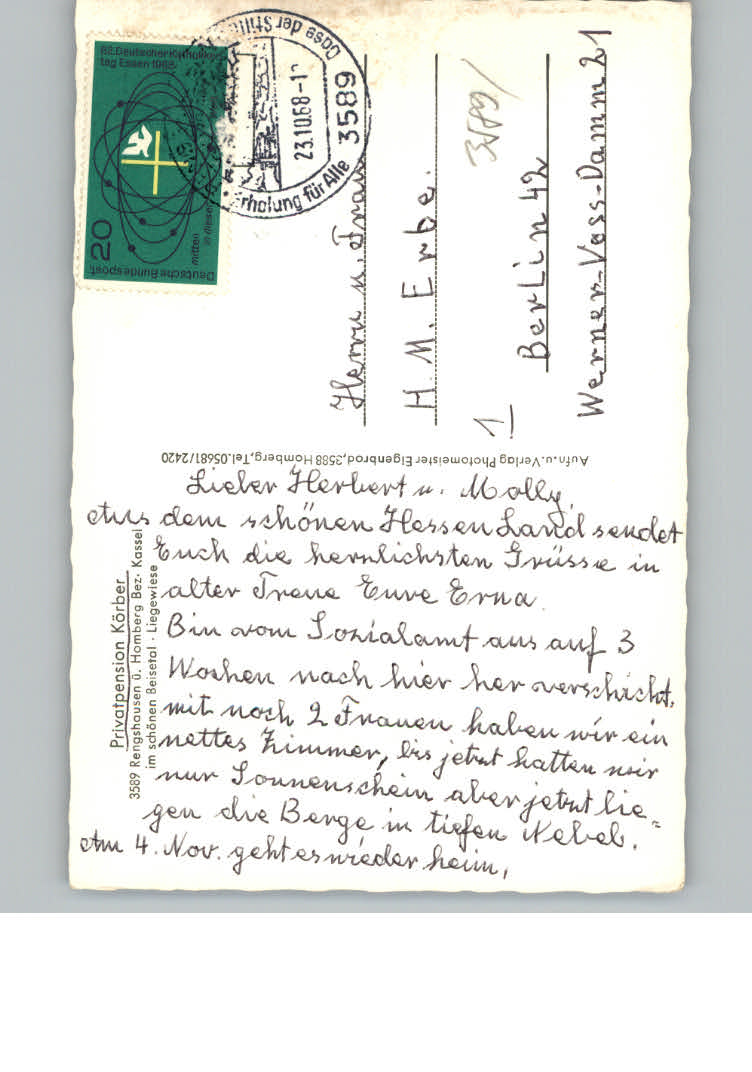 82. Deutscher Katholiken-
tag Essen 1968
mitten
in dieser
20
Deutsche Bundespost
Oase der Stille
23.10.68-1
3589
Erholung für Alle
3589/
Herrn u. Frau
H. M. Erbe.
1
Berlin 42
Werner-Voss-Damm 21
Aufn. u. Verlag Photomeister Eigenbrod, 3588 Homberg, Tel. 05681/2420
Privatpension Körber
3589 Rengshausen ü. Homberg Bez. Kassel
im schönen Beisetal · Liegewiese
Lieber Herbert u. Molly,
Aus dem schönen Hessen Land sendet
Euch die herrlichsten Grüsse in
alter Treue Eure Erna.
Bin vom Sozialamt aus auf 3
Wochen nach hier her verschickt,
mit noch 2 Frauen haben wir ein
nettes Zimmer, bis jetzt hatten wir
nur Sonnenschein aber jetzt lie=
gen die Berge in tiefen Nebel.
Am 4. Nov. geht es wieder heim,